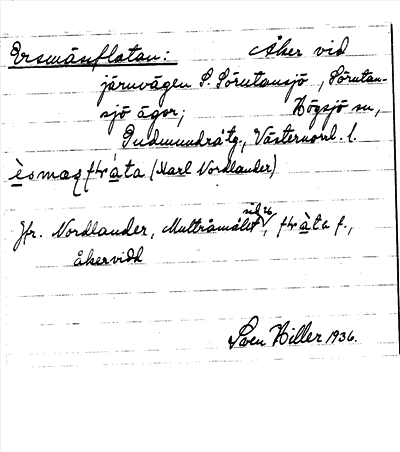 Ersmäsflatan: Åker vid
järnvägen S. Sörutansjö, Sörutan-
sjö ägor; Högsjö sn,
Gudmundrå tg., Västernorrl. l.
(Karl Nordlander)
Jfr. Nordlander, Multråmålet, sid 26, f.,
åkervidd
Sven Hiller 1936.